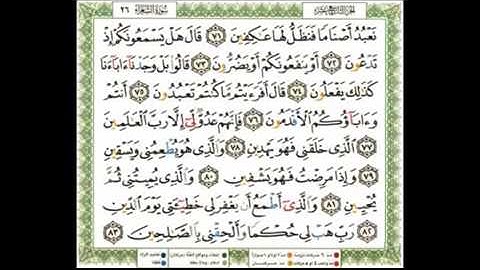 الجزء التاسع عشر ٢٦ سورة الشعراء
نَعْبُدُ أَصْنَامًا فَنَظَلُّ لَهَا عَٰكِفِينَ ٧١ قَالَ هَلْ يَسْمَعُونَكُمْ إِذْ
تَدْعُونَ ٧٢ أَوْ يَنفَعُونَكُمْ أَوْ يَضُرُّونَ ٧٣ قَالُوا بَلْ وَجَدْنَآ ءَابَآءَنَا
كَذَٰلِكَ يَفْعَلُونَ ٧٤ قَالَ أَفَرَءَيْتُم مَّا كُنتُمْ تَعْبُدُونَ ٧٥ أَنتُمْ
وَءَابَآؤُكُمُ ٱلْأَقْدَمُونَ ٧٦ فَإِنَّهُمْ عَدُوٌّ لِّىٓ إِلَّا رَبَّ ٱلْعَٰلَمِينَ
٧٧ ٱلَّذِى خَلَقَنِى فَهُوَ يَهْدِينِ ٧٨ وَٱلَّذِى هُوَ يُطْعِمُنِى وَيَسْقِينِ
٧٩ وَإِذَا مَرِضْتُ فَهُوَ يَشْفِينِ ٨٠ وَٱلَّذِى يُمِيتُنِى ثُمَّ
يُحْيِينِ ٨١ وَٱلَّذِىٓ أَطْمَعُ أَن يَغْفِرَ لِى خَطِيٓـَٔتِى يَوْمَ ٱلدِّينِ
٨٢ رَبِّ هَبْ لِى حُكْمًا وَأَلْحِقْنِى بِٱلصَّٰلِحِينَ ٨٣